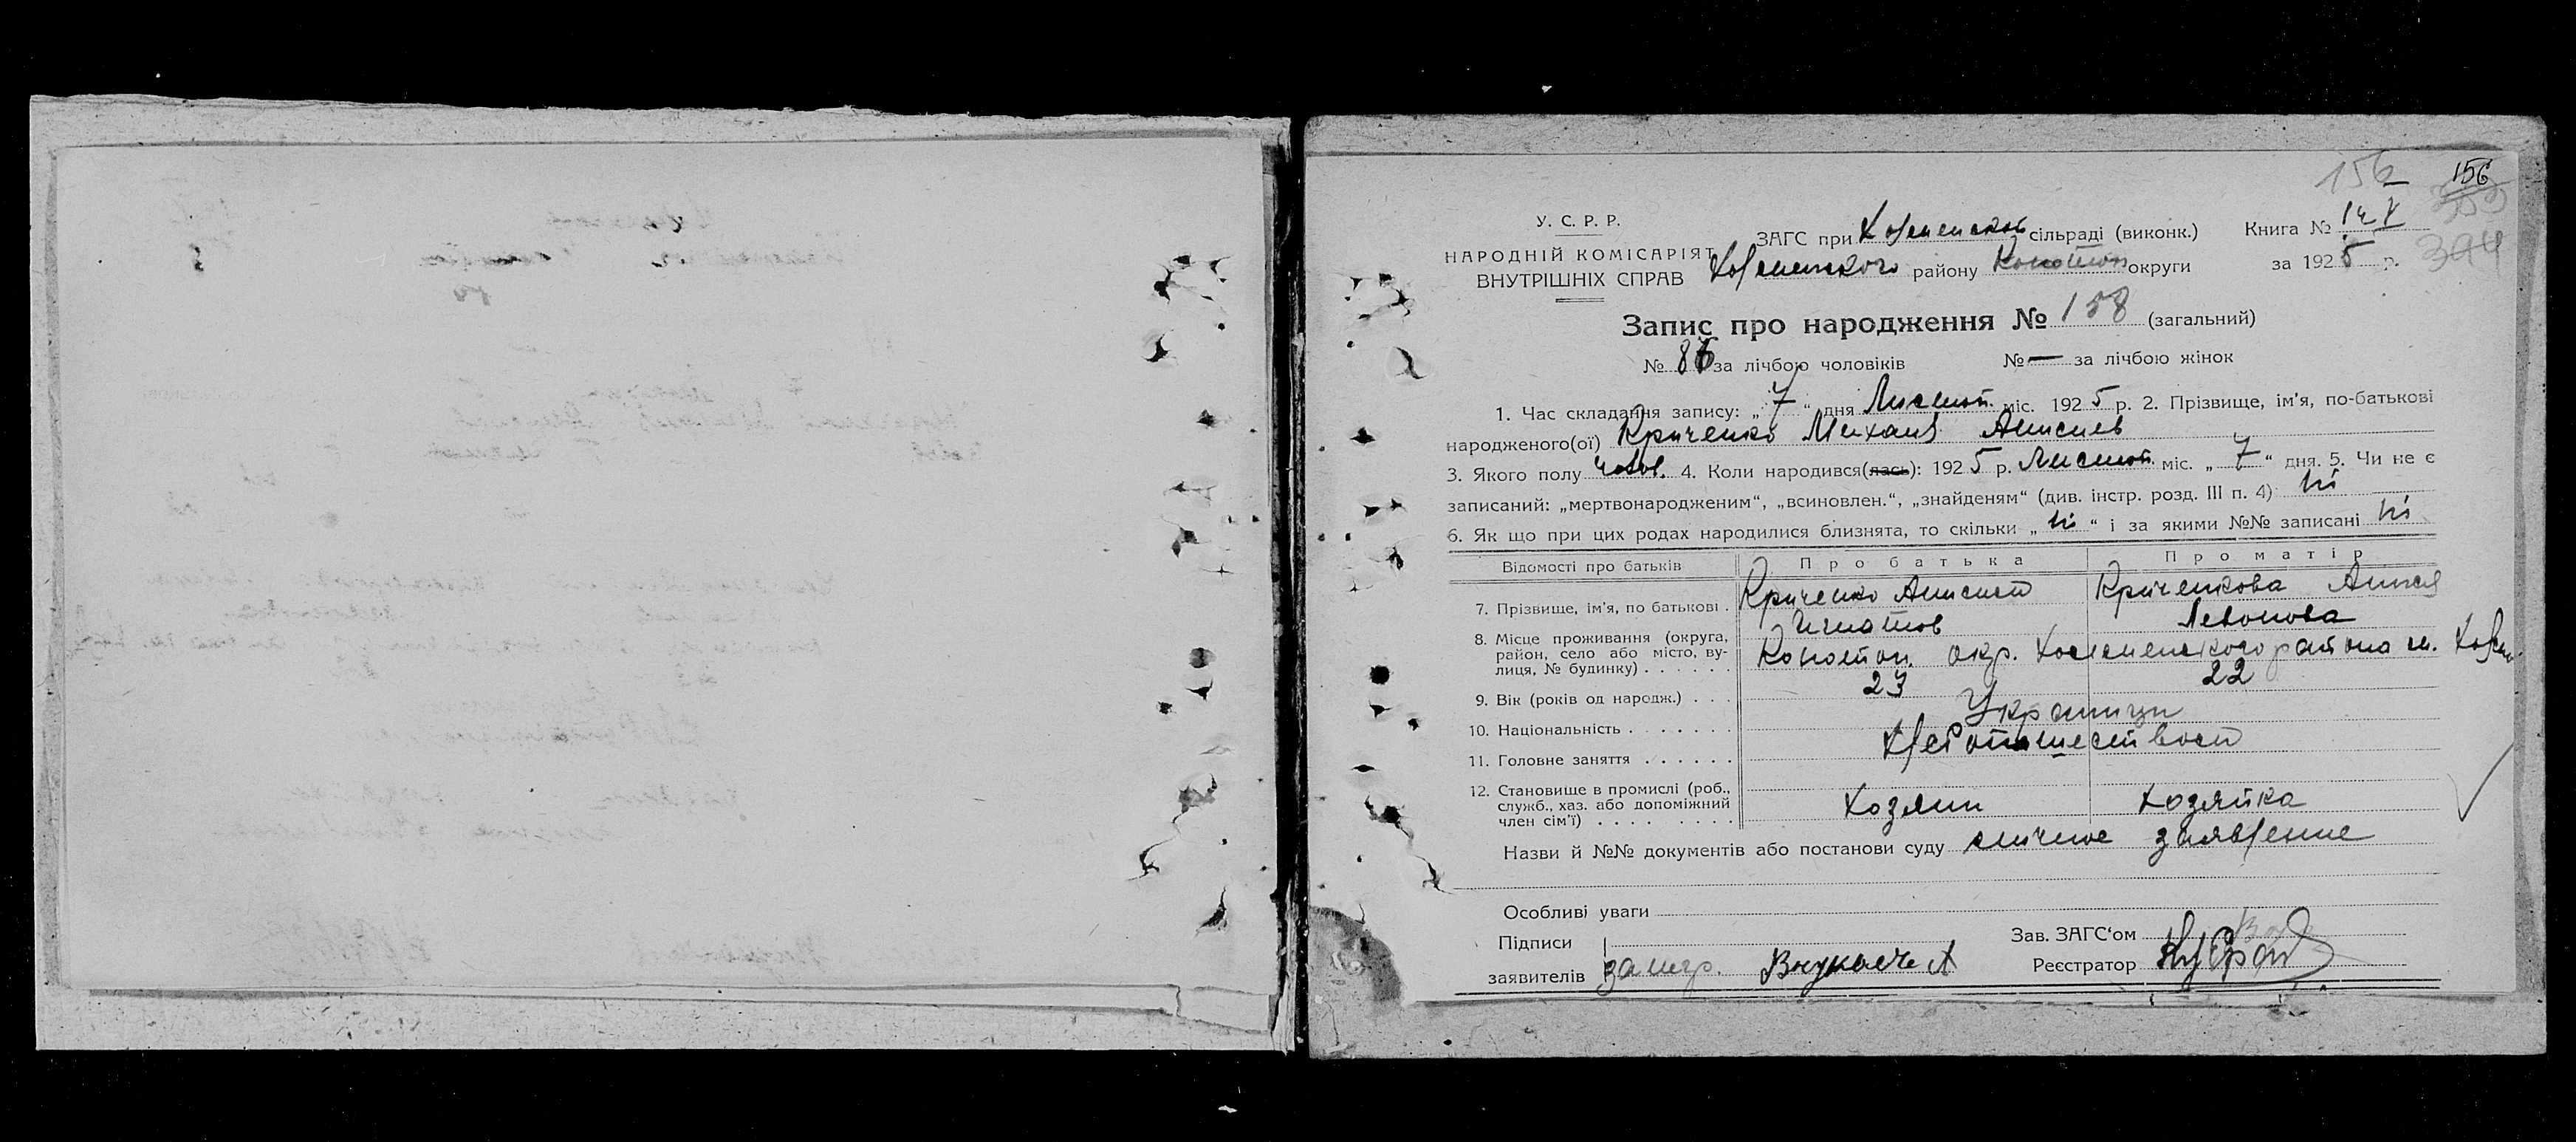 156 156
У. С. Р. Р.
НАРОДНІЙ КОМІСАРІЯТ
ВНУТРІШНІХ СПРАВ
ЗАГС при Холменской сільраді (виконк.) Книга №
Холменского району Конотоп округи за 1925 р.
Запис про народження № 158 (загальний)
№ 86 за лічбою чоловіків № — за лічбою жінок
1. Час складання запису: „7“ дня Листоп. міс. 1925 р. 2. Прізвище, ім'я, по-батькові
народженого(ої) Криченко Михаил Анисиев
3. Якого полу чолов. 4. Коли народився(лась): 1925 р. Листоп. міс. „7“ дня. 5. Чи не є
записаний: „мертвонародженим“, „всиновлен.“, „знайденям“ (див. інстр. розд. III п. 4) ні
6. Як що при цих родах народилися близнята, то скільки „ні“ і за якими №№ записані ні
Відомості про батьків Про батька Про матір
7. Прізвище, ім'я, по батькові . Криченко Анисий Игнатов Криченкова Левонова
8. Місце проживання (округа,
район, село або місто, ву-
лиця, № будинку) . . . . . . Конотоп. окр. Холменского района м.
9. Вік (років од народж.) . . . 23 22
10. Національність . . . . . . . Украинци
11. Головне заняття . . . . . . Хлебопашество
12. Становище в промислі (роб.,
служб., хаз. або допоміжний
член сім'ї) . . . . . . . . . Хозяин Хозяйка
Назви й №№ документів або постанови суду личное заявление
Особливі уваги
Підписи Зав. ЗАГС'ом
заявителів Реєстратор